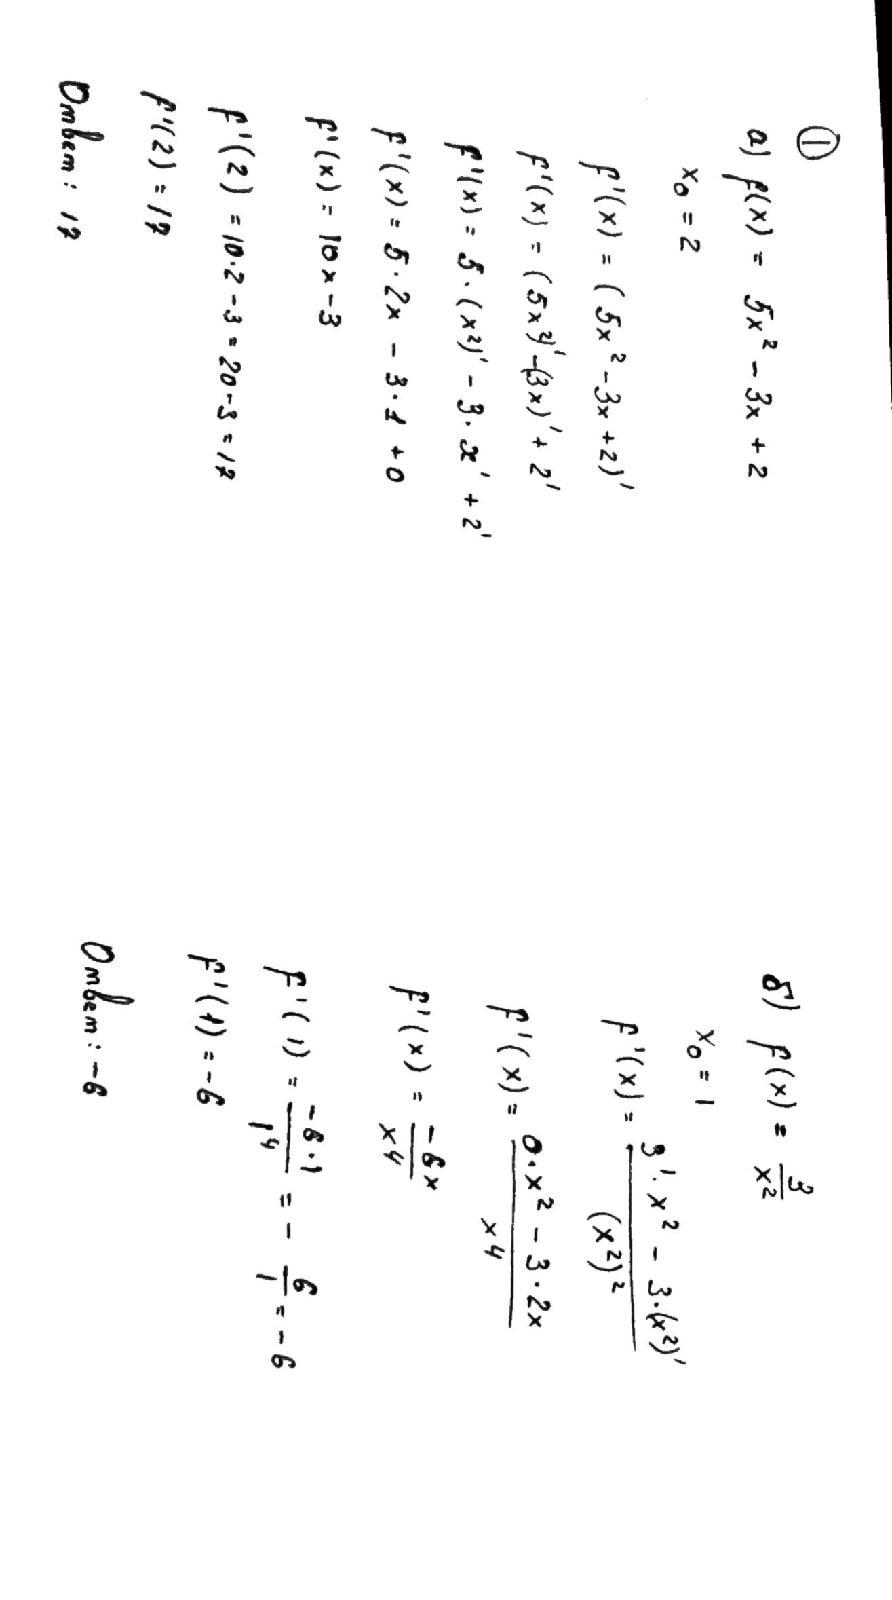 ①
а) f(x) = 5x² - 3x + 2
x₀ = 2
f'(x) = (5x² - 3x + 2)'
f'(x) = (5x²)' - (3x)' + 2'
f'(x) = 5 · (x²)' - 3 · x' + 2'
f'(x) = 5 · 2x - 3 · 1 + 0
f'(x) = 10x - 3
f'(2) = 10 · 2 - 3 = 20 - 3 = 17
f'(2) = 17
Ответ: 17
б) f(x) = 3/x²
x₀ = 1
f'(x) = (3' · x² - 3 · (x²)')/(x²)²
f'(x) = (0 · x² - 3 · 2x)/x⁴
f'(x) = -6x/x⁴
f'(1) = (-6 · 1)/1⁴ = - 6/1 = -6
f'(1) = -6
Ответ: -6